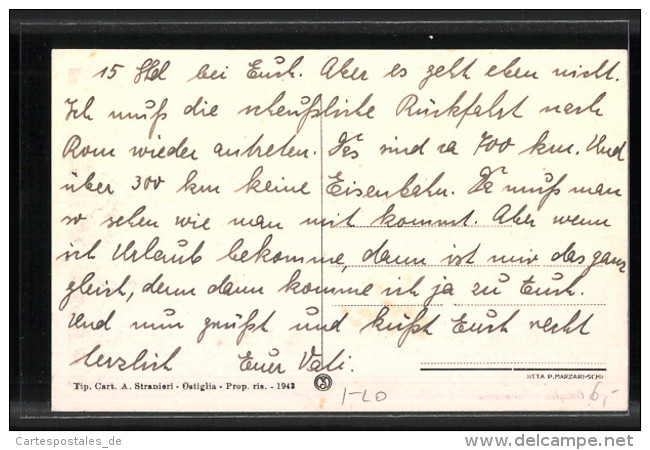 15 Std bei Euch. Aber es geht eben nicht.
Ich muß die scheußliche Rückfahrt nach
Rom wieder antreten. Es sind ca 700 km. Und
über 300 km keine Eisenbahn. Da muß man
so sehen wie man mit kommt. Aber wenn
ich Urlaub bekomme, dann ist mir das ganz
gleich, denn dann komme ich ja zu Euch.
Und nun grüßt und küßt Euch recht
herzlich Euer Vati.
DITTA P. MARZARI-SCHIO
Tip. Cart. A. Stranieri - Ostiglia - Prop. ris. - 1943
I-LO
6,-
Cartespostales_de
www.delcampe.net